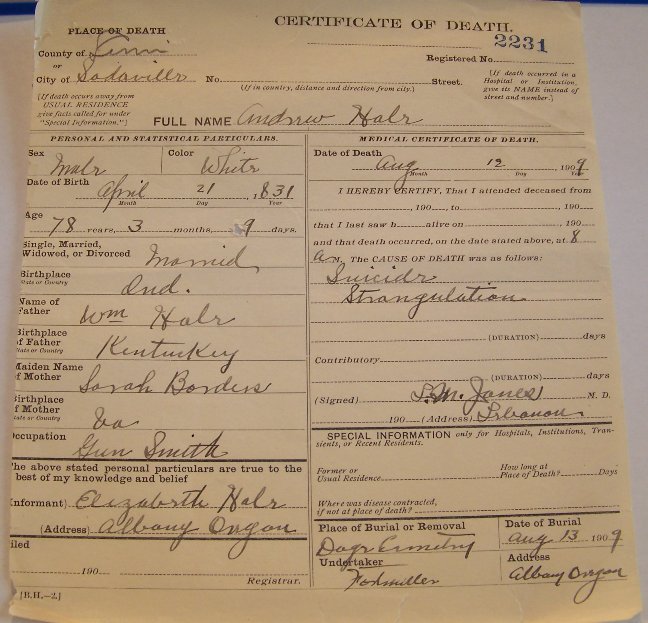 CERTIFICATE OF DEATH.
2231
PLACE OF DEATH
County of Linn
Registered No.
or
City of Sodaville No. Street.
(If in country, distance and direction from city.)
(If death occurred in a Hospital or Institution, give its NAME instead of street and number.)
(If death occurs away from USUAL RESIDENCE give facts called for under "Special Information.")
FULL NAME Andrew Hale
PERSONAL AND STATISTICAL PARTICULARS.
Sex Male Color White
Date of Birth April 21, 1831
Month Day Year
Age 78 years, 3 months, 9 days.
Single, Married, Widowed, or Divorced Married
Birthplace
State or Country
Ind.
Name of Father Wm Hale
Birthplace of Father
State or Country
Kentuckey
Maiden Name of Mother Sarah Borders
Birthplace of Mother
State or Country
Va
Occupation Gun Smith
The above stated personal particulars are true to the best of my knowledge and belief
(Informant) Elizabeth Hale
(Address) Albany Oregon
Filed
190
Registrar.
[B.H.—2.]
MEDICAL CERTIFICATE OF DEATH.
Date of Death Aug 12, 1909
Month Day Year
I HEREBY CERTIFY, That I attended deceased from
, 190 , to , 190
that I last saw h alive on , 190
and that death occurred, on the date stated above, at 8
a M. The CAUSE OF DEATH was as follows:
Suicide
Strangulation
(DURATION) days
Contributory
(DURATION) days
(Signed) S.M. Jones M. D.
190 (Address) Lebanon
SPECIAL INFORMATION only for Hospitals, Institutions, Transients, or Recent Residents.
Former or Usual Residence
How long at Place of Death? Days
Where was disease contracted, if not at place of death?
Place of Burial or Removal
Date of Burial
Aug 13 1909
Undertaker
Fortmiller
Address
Albany Oregon